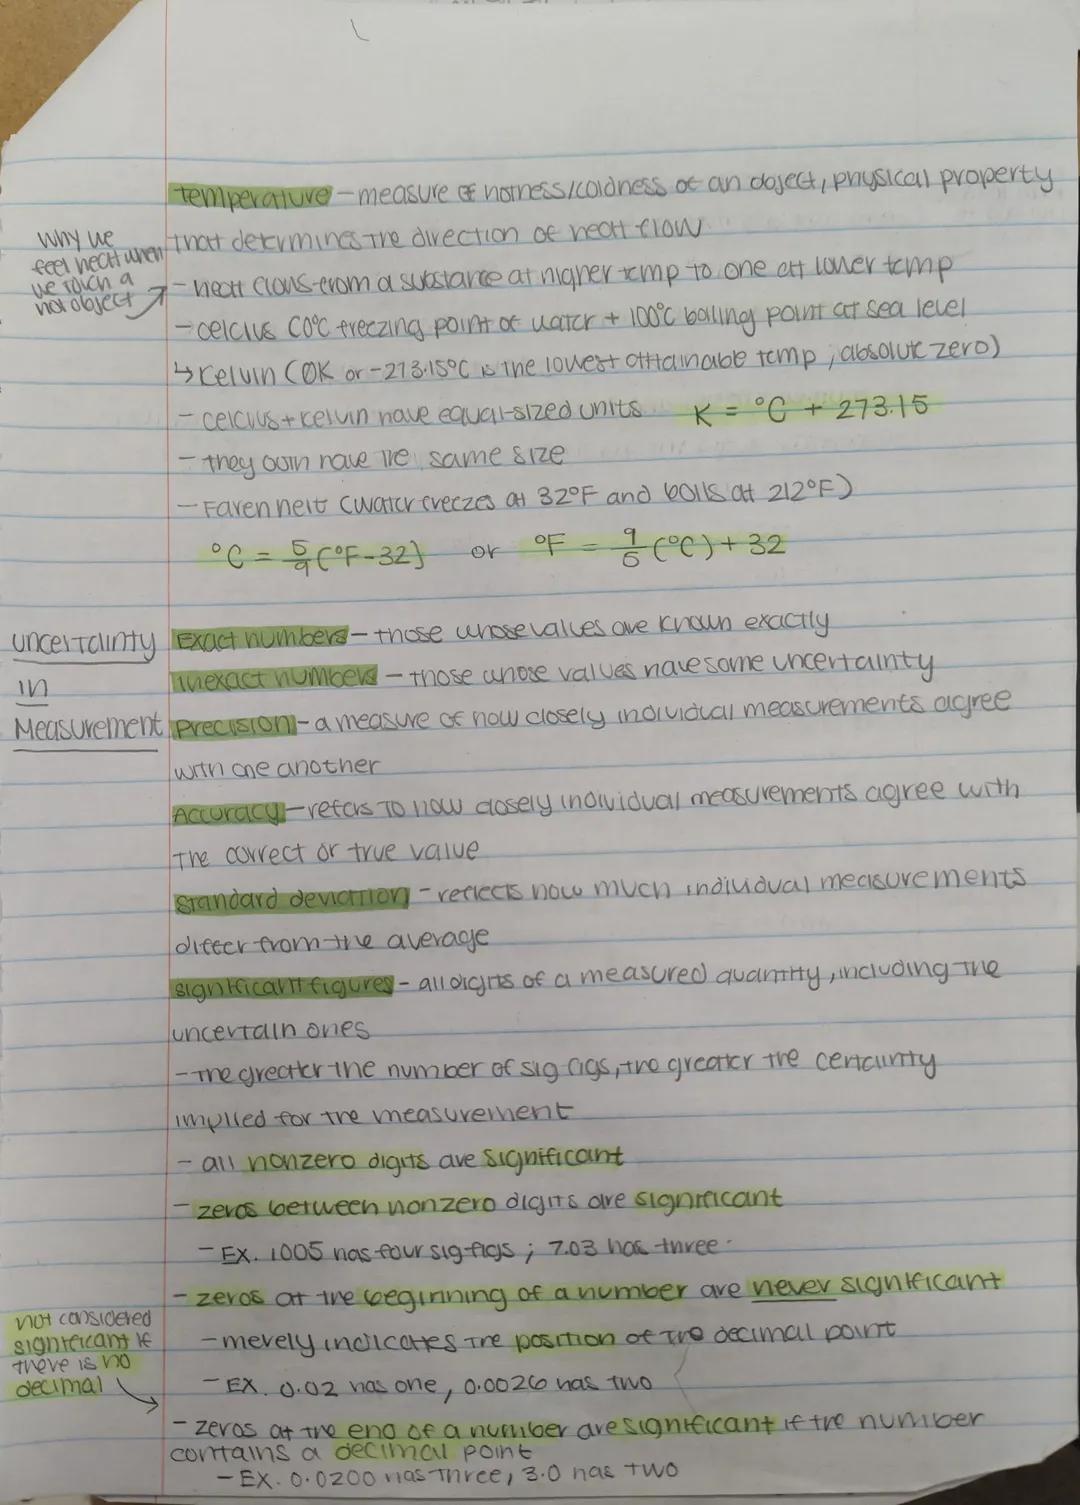 temperature - measure of hotness/coldness of an object, physical property
that determines the direction of heat flow
why we
feel heat when
we touch a
hot object
- heat flows from a substance at higher temp to one at lower temp
- celcius (0°C freezing point of water + 100°C boiling point at sea level
↳ kelvin (0K or -273.15°C is the lowest attainable temp, absolute zero)
- celcius + kelvin have equal-sized units K = °C + 273.15
- they both have the same size
- Farenheit (water freezes at 32°F and boils at 212°F)
°C = 5/9 (°F-32) or °F = 9/5 (°C) + 32
uncertainty
in
Measurement
Exact numbers - those whose values are known exactly
inexact numbers - those whose values have some uncertainty
Precision - a measure of how closely individual measurements agree
with one another
Accuracy - refers to how closely individual measurements agree with
the correct or true value
standard deviation - reflects how much individual measurements
differ from the average
significant figures - all digits of a measured quantity, including the
uncertain ones
- the greater the number of sig figs, the greater the certainty
implied for the measurement
- all nonzero digits are significant
- zeros between nonzero digits are significant
- EX. 1005 has four sig figs ; 7.03 has three
- zeros at the beginning of a number are never significant
- merely indicates the position of the decimal point
- EX. 0.02 has one, 0.0026 has two
not considered
significant if
there is no
decimal
- zeros at the end of a number are significant if the number
contains a decimal point
- EX. 0.0200 has three, 3.0 has two